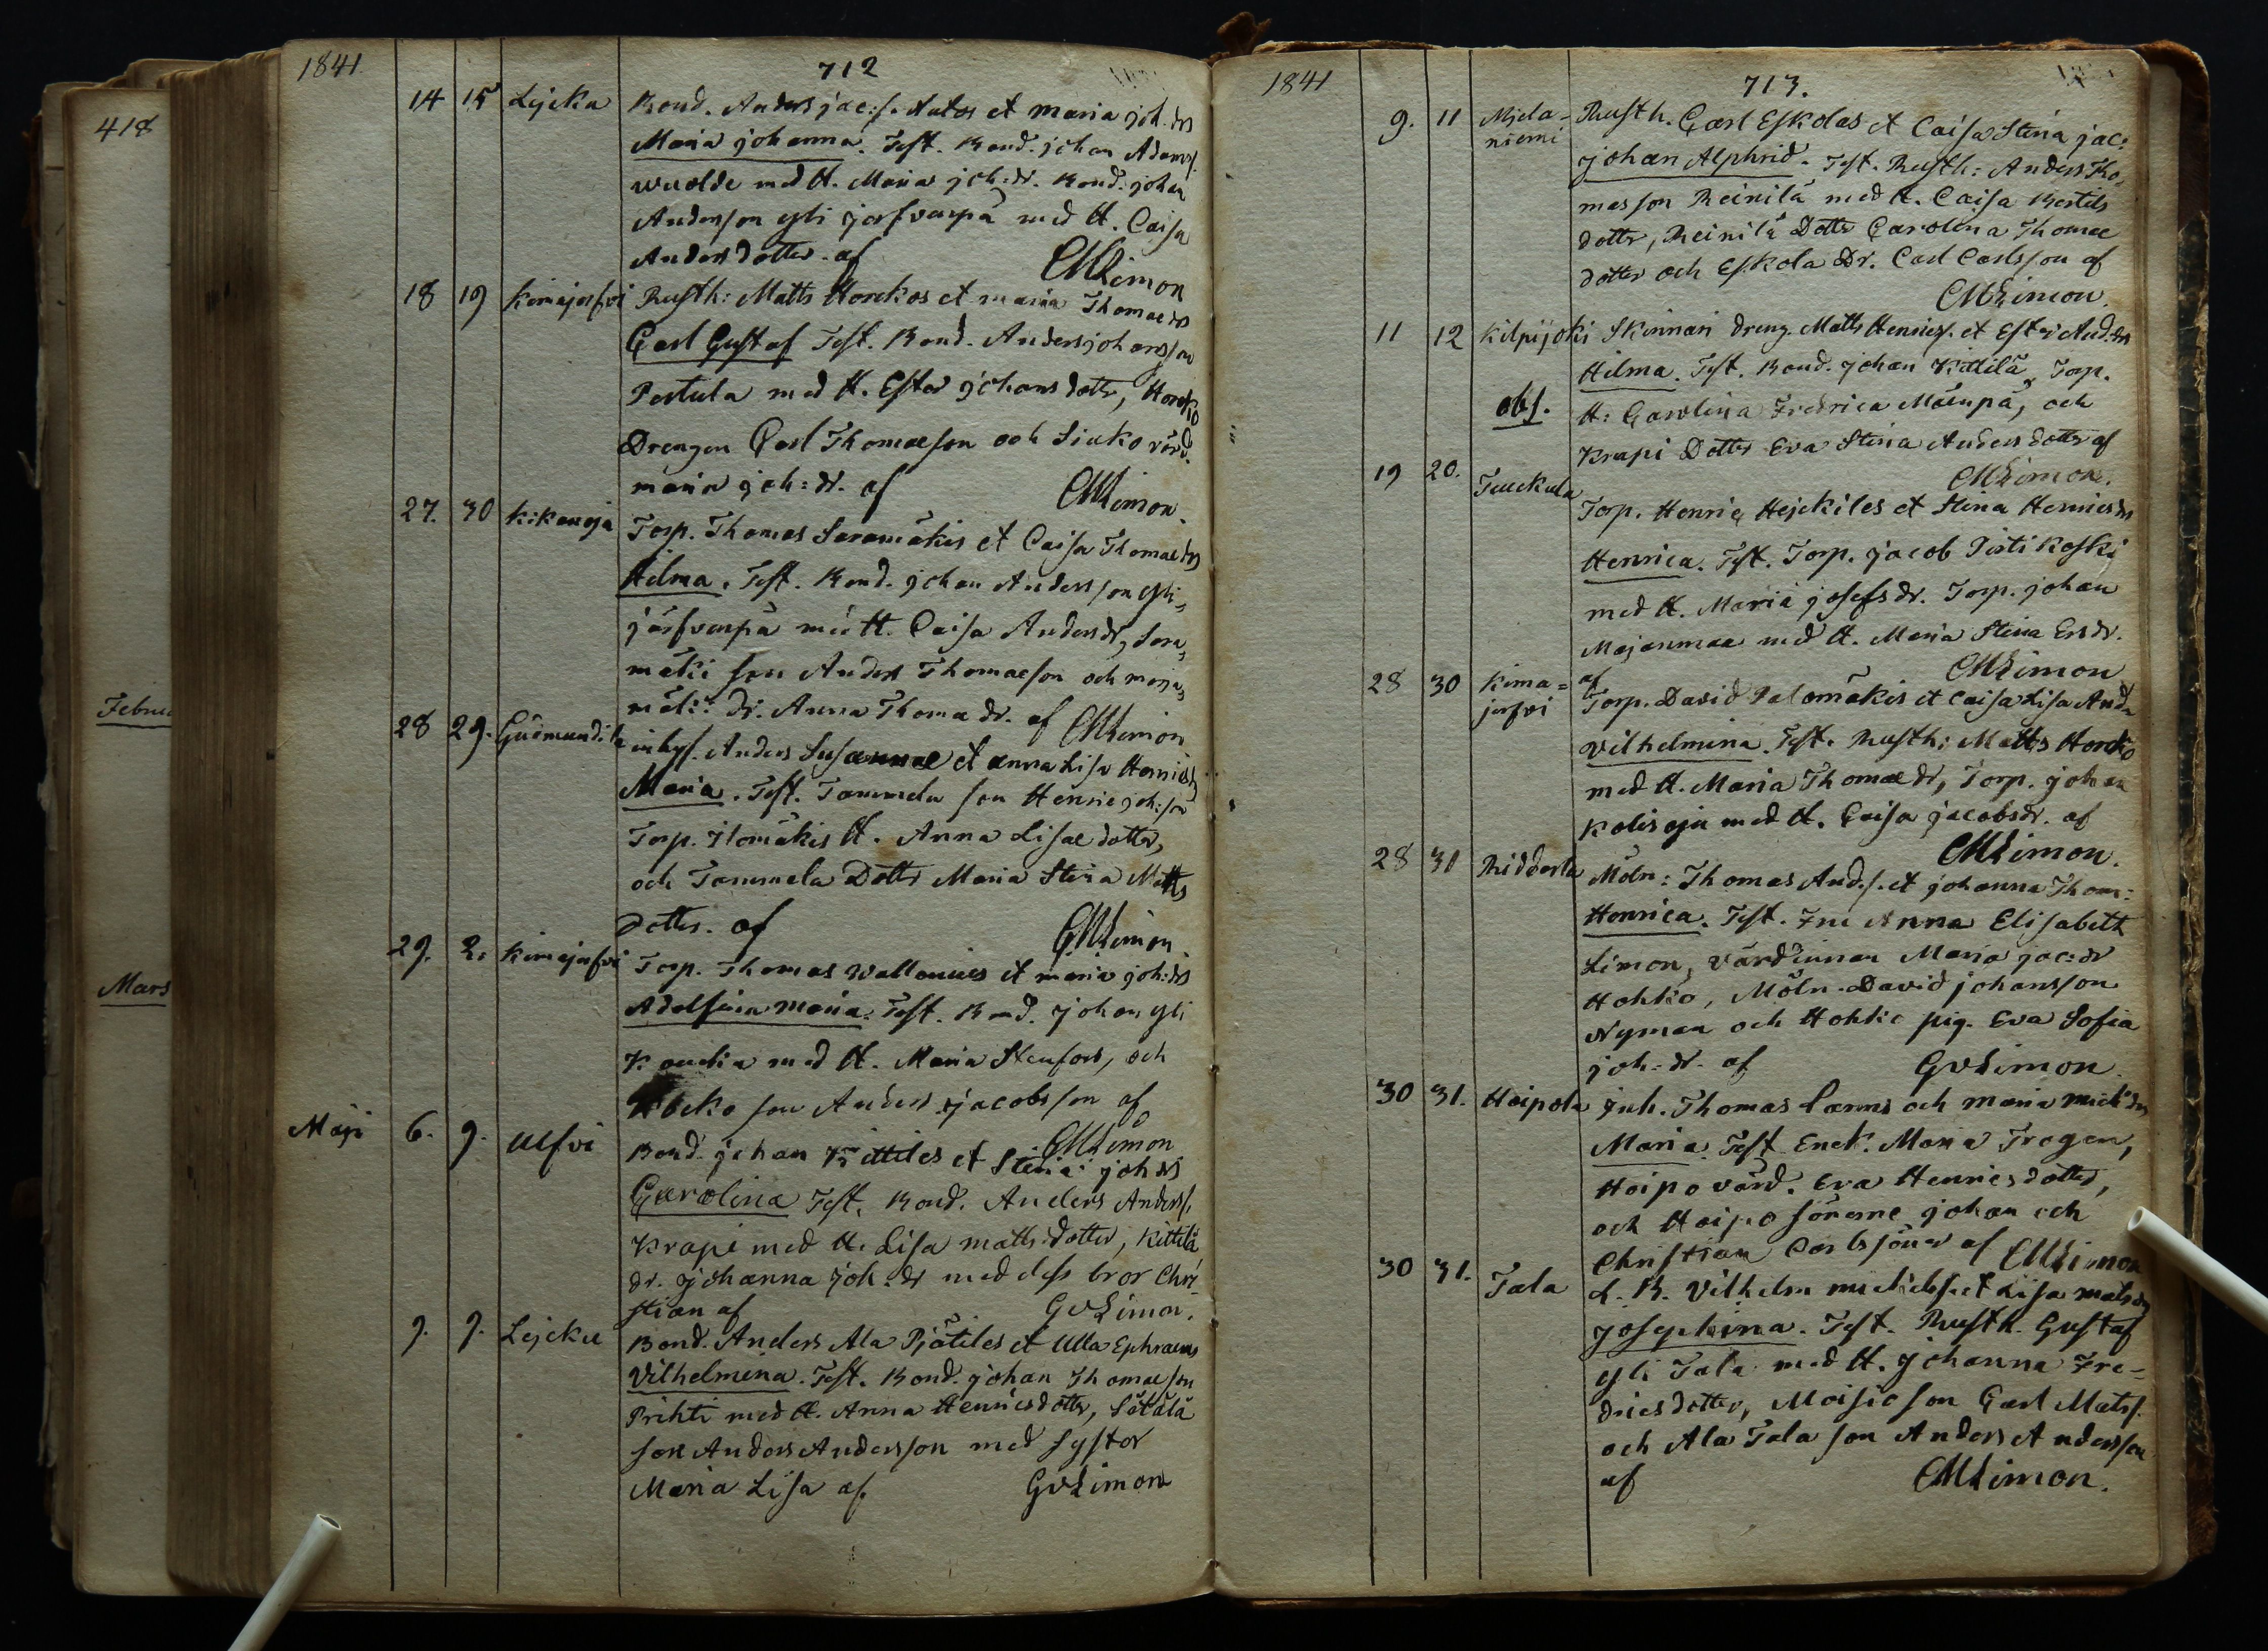 418
Febru
Mars
1841.
712
14 15 Lejcku Bond. Anders jac:s. Autos et Maria joh. drs
Maria johanna. Test. Bond. johan Adams.
med H. Maria joh:dr. Bond. johan
Andersson yli jerfvenpä med H. Caisa
Andersdotter. af CMLimon
18 19 Kimajerfvi Rusth: Matts Horckos et maria Thomae drs
Carl Gustaf Test. Bond. Anders johansson
Pertula med H. Ester johansdotter, Horcko
Drengen Carl Thomaeson och värd.
maria joh:dr. af CMLimon.
27. 30 Kikanoja Torp. Thomas Saramäkis et Caisa Thomae drs
Hilma. Test. Bond. johan Andersson yli-
järfvenpä med H. Caisa Andersdr, Sara-
mäki son Anders Thomaeson och moja-
mäki dr. Anna Thomae dr. af CMLimon
28 29. Gudmundila inhys. Anders Susannae et anna Lisa Henricsdrs
Maria. Test. Tammela son Henric joh:son
Torp. Ilomäkis H. Anna Lisae dotter,
och Tammela Dotter Maria Stina Matts
dotter. af CMLimon.
29. 2. Kimajerfvi Torp. Thomas Wallonius et maria joh:drs
Adolfina Maria. Test. Bond. johan yli
Knuckia med H. Maria Stenfors, och
son Anders jacobsson af
CMLimon
Maji 6. 9. Ulfvi Bond. johan Kittiles et Stina joh drs
Carolina Test. Bond. Anders Anderss.
Krapi med H. Lisa mattsdotter, Kittilä
dr. johanna joh:dr med dess bror Chri-
stian af GvLimon.
9. 9. Lejcku Bond. Anders Ala Pjätiles et Ulla Ephraims
Vilhelmina. Test. Bond. johan Thomaeson
Prihti med H. Anna Henricsdotter, Sätälä
son Anders Andersson med syster
Maria Lisa af. GvLimon
1841
713.
9. 11 Mjela- Rusth. Carl Eskolas et Caisa Stina jac:
niemi johan Alphrid. Test. Rusth: Anders Tho-
masson Reinilä med H. Caisa Bertils
dotter, Reinilä Dotter Carolina Thomae
dotter och Eskola Dr. Carl Carlsson af
CMLimon.
11 12 Kilpijoki Skinnari dreng Matts Henrics. et Ester And:drs
Hilma. Test. Bond. johan Kittilä, Torp.
obs. H: Carolina Fredrica Mäenpä, och
Krapi Dotter Eva Stina Andersdotter af
CMLimon.
19 20. Tuuckula Torp. Henric Hejckiles et Stina Henricsdrs
Henrica. Test. Torp. jacob Pirtikoski
med H. Maria josefsdr. Torp. johan
Majanmaa med H. Maria Stina Ersdr.
af CMLimon
28 30 Kima- Torp. David Palomäkis et Caisa Lisa And.
jerfvi Vilhelmina. Test. Rusth: Matts Horcko
med H. Maria Thomae dr, Torp. johan
Kolisoja med H. Caisa jacobsdr. af
CMLimon.
28 31 Ridderla Möln: Thomas And.s. et johanna Thom:
Henrica. Test. Fru Anna Elisabeth
Limon, värdinnan Maria jac:dr
Hohko, Möln. David johansson
Nyman och Hohko pig. Eva Sofia
joh:dr. af GvLimon.
30 31. Hoipola Inh. Thomas Larms och maria mich:drs
Maria. Test Enck. Maria Trogen,
Hoipo värd. Eva Henricsdotter,
och Hoipo sönerne johan och
Christian Carlssöner af CMLimon
30 31. Tala L. B. Vilhelm michels. et Lisa matsdrs
Josephina. Test. Rusth. Gustaf
yli Tala med H. Johanna Fre-
dricsdotter, Moisio son Carl Matss.
och Ala Tala son Anders Andersson
af CMLimon.